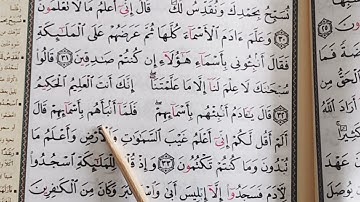 نُسَبِّحُ بِحَمْدِكَ وَنُقَدِّسُ لَكَ قَالَ إِنِّي أَعْلَمُ مَا لَا تَعْلَمُونَ
٣٠ وَعَلَّمَ ءَادَمَ الْأَسْمَاءَ كُلَّهَا ثُمَّ عَرَضَهُمْ عَلَى الْمَلَٰئِكَةِ
فَقَالَ أَنۢبِـُٔونِي بِأَسْمَاءِ هَٰؤُلَاءِ إِن كُنتُمْ صَٰدِقِينَ ٣١ قَالُوا
سُبْحَٰنَكَ لَا عِلْمَ لَنَا إِلَّا مَا عَلَّمْتَنَا إِنَّكَ أَنتَ الْعَلِيمُ الْحَكِيمُ
٣٢ قَالَ يَٰـَٔادَمُ أَنۢبِئْهُم بِأَسْمَائِهِمْ فَلَمَّا أَنۢبَأَهُم بِأَسْمَائِهِمْ قَالَ
أَلَمْ أَقُل لَّكُمْ إِنِّي أَعْلَمُ غَيْبَ السَّمَٰوَٰتِ وَالْأَرْضِ وَأَعْلَمُ مَا
تُبْدُونَ وَمَا كُنتُمْ تَكْتُمُونَ ٣٣ وَإِذْ قُلْنَا لِلْمَلَٰئِكَةِ اسْجُدُوا
لِـَٔادَمَ فَسَجَدُوا إِلَّا إِبْلِيسَ أَبَىٰ وَاسْتَكْبَرَ وَكَانَ مِنَ الْكَٰفِرِينَ